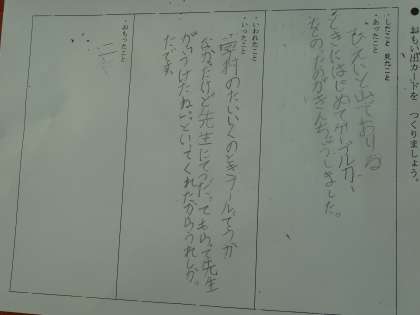 ● おもい出カードを つくりましょう。
・したこと 見たこと
・あったこと
ひえい山でおりる
ときにはじめてケーブルカー、
をのったのがきんちょうしました。
・いわれたこと
・いったこと
中村のたいいくのときプールでうか
なかったけど先生にてつだってもらって先生
がらうけたねといてくれたからうれしか
たです。
・おもったこと